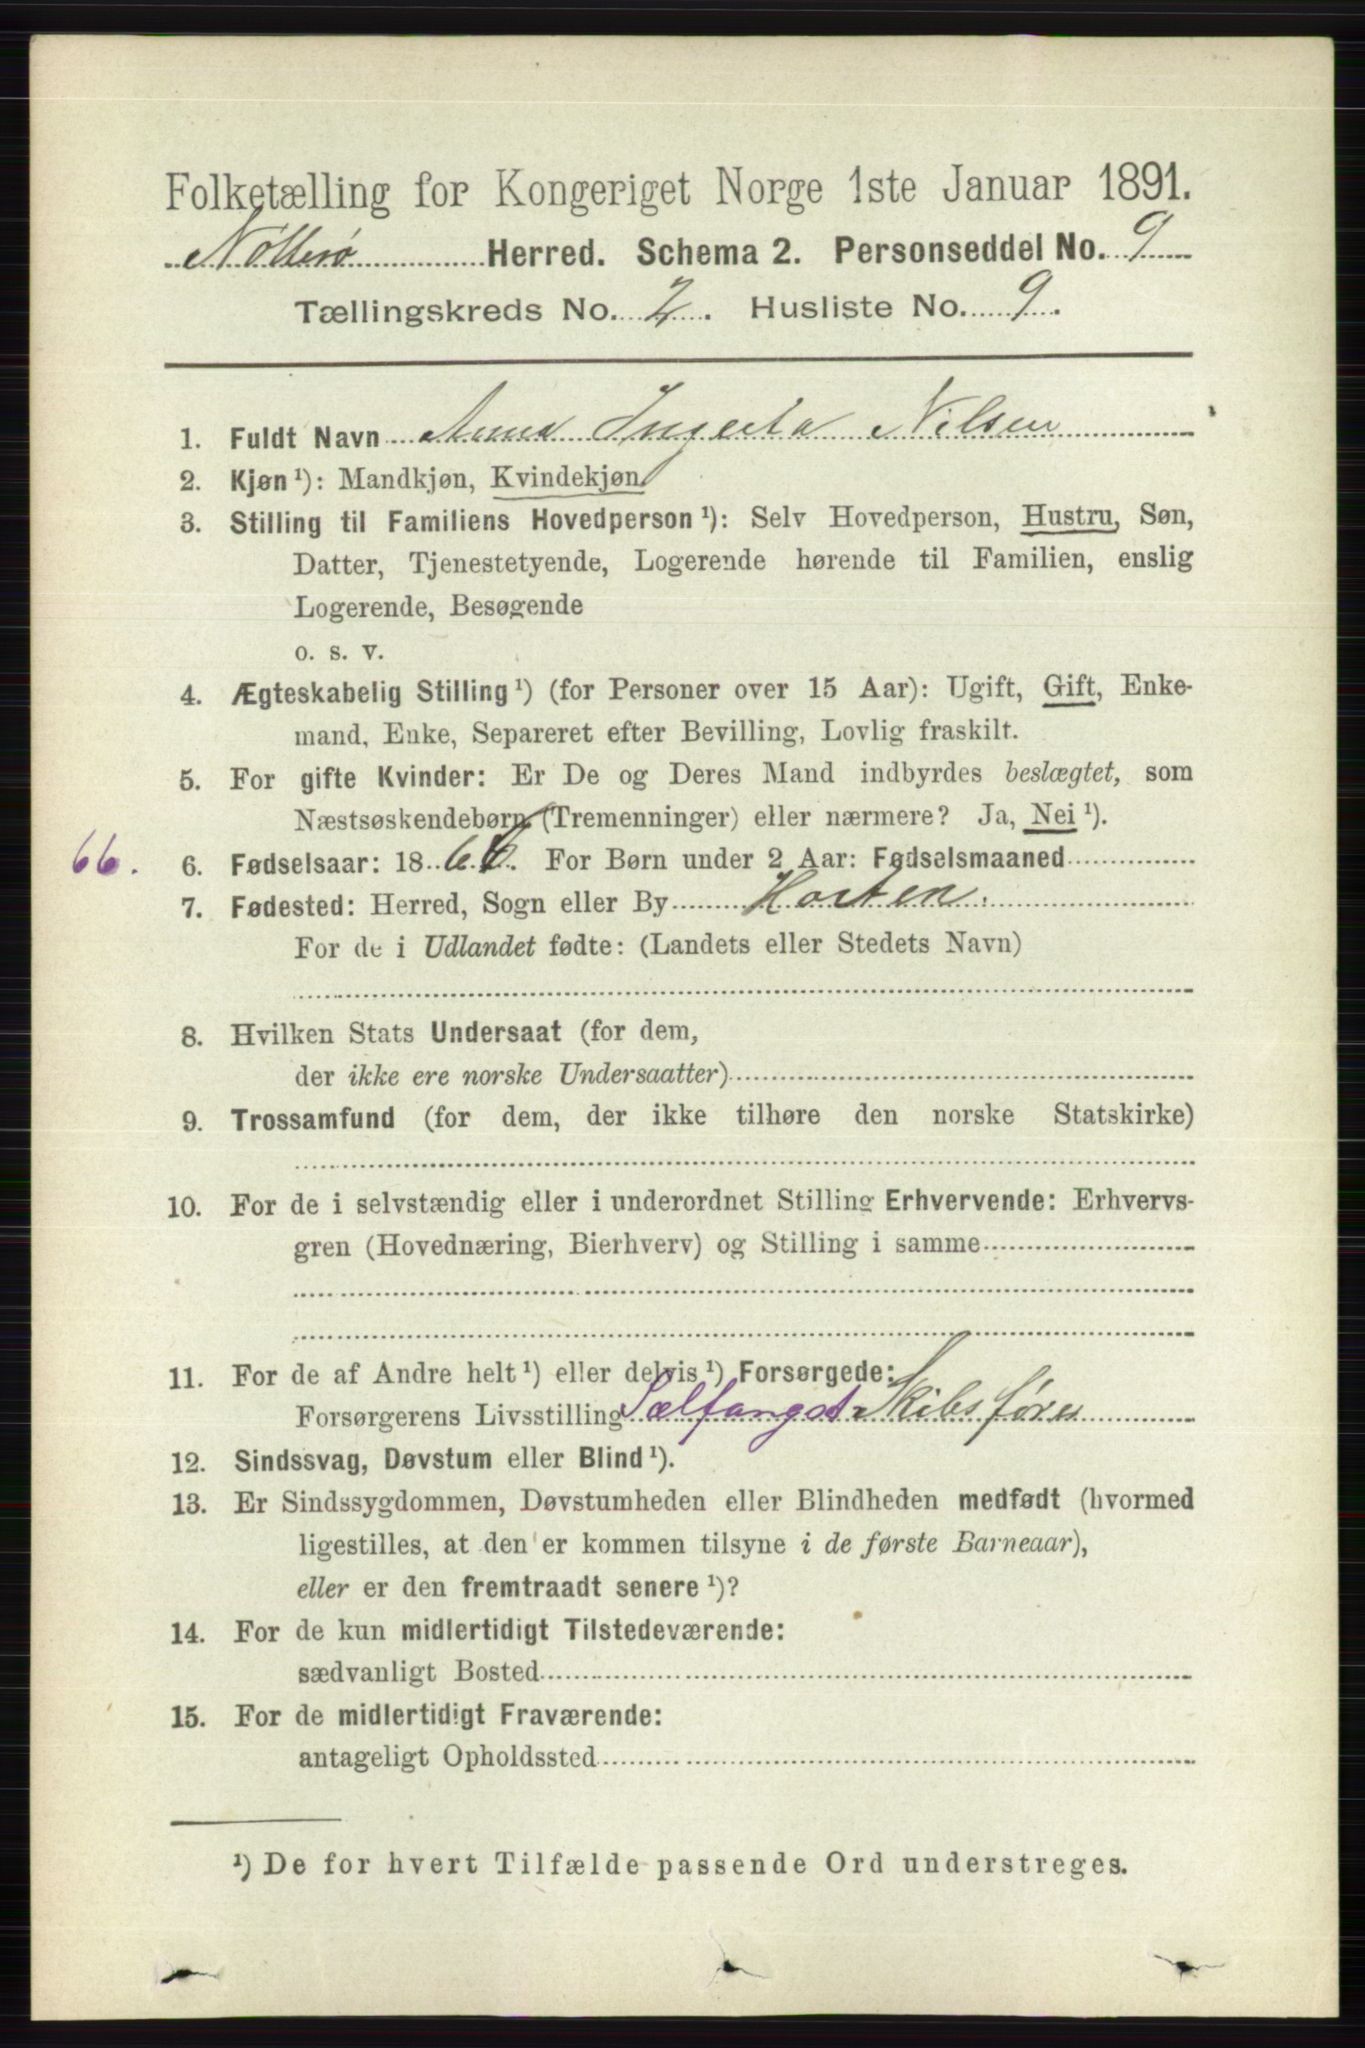 Folketælling for Kongeriget Norge 1ste Januar 1891.
Nøtterø Herred. Schema 2. Personseddel No. 9
Tællingskreds No. 2. Husliste No. 9.
1. Fuldt Navn Anna Ingerta Nilsen
2. Kjøn ¹): Mandkjøn, Kvindekjøn
3. Stilling til Familiens Hovedperson ¹): Selv Hovedperson, Hustru, Søn,
Datter, Tjenestetyende, Logerende hørende til Familien, enslig
Logerende, Besøgende
o. s. v.
4. Ægteskabelig Stilling ¹) (for Personer over 15 Aar): Ugift, Gift, Enke-
mand, Enke, Separeret efter Bevilling, Lovlig fraskilt.
5. For gifte Kvinder: Er De og Deres Mand indbyrdes beslægtet, som
Næstsøskendebørn (Tremenninger) eller nærmere? Ja, Nei ¹).
66. 6. Fødselsaar: 18 66. For Børn under 2 Aar: Fødselsmaaned
7. Fødested: Herred, Sogn eller By Horten.
For de i Udlandet fødte: (Landets eller Stedets Navn)
8. Hvilken Stats Undersaat (for dem,
der ikke ere norske Undersaatter)
9. Trossamfund (for dem, der ikke tilhøre den norske Statskirke)
10. For de i selvstændig eller i underordnet Stilling Erhvervende: Erhvervs-
gren (Hovednæring, Bierhverv) og Stilling i samme
11. For de af Andre helt ¹) eller delvis ¹) Forsørgede:
Forsørgerens Livsstilling Sælfangst Skibsfører
12. Sindssvag, Døvstum eller Blind ¹).
13. Er Sindssygdommen, Døvstumheden eller Blindheden medfødt (hvormed
ligestilles, at den er kommen tilsyne i de første Barneaar),
eller er den fremtraadt senere ¹)?
14. For de kun midlertidigt Tilstedeværende:
sædvanligt Bosted
15. For de midlertidigt Fraværende:
antageligt Opholdssted
¹) De for hvert Tilfælde passende Ord understreges.